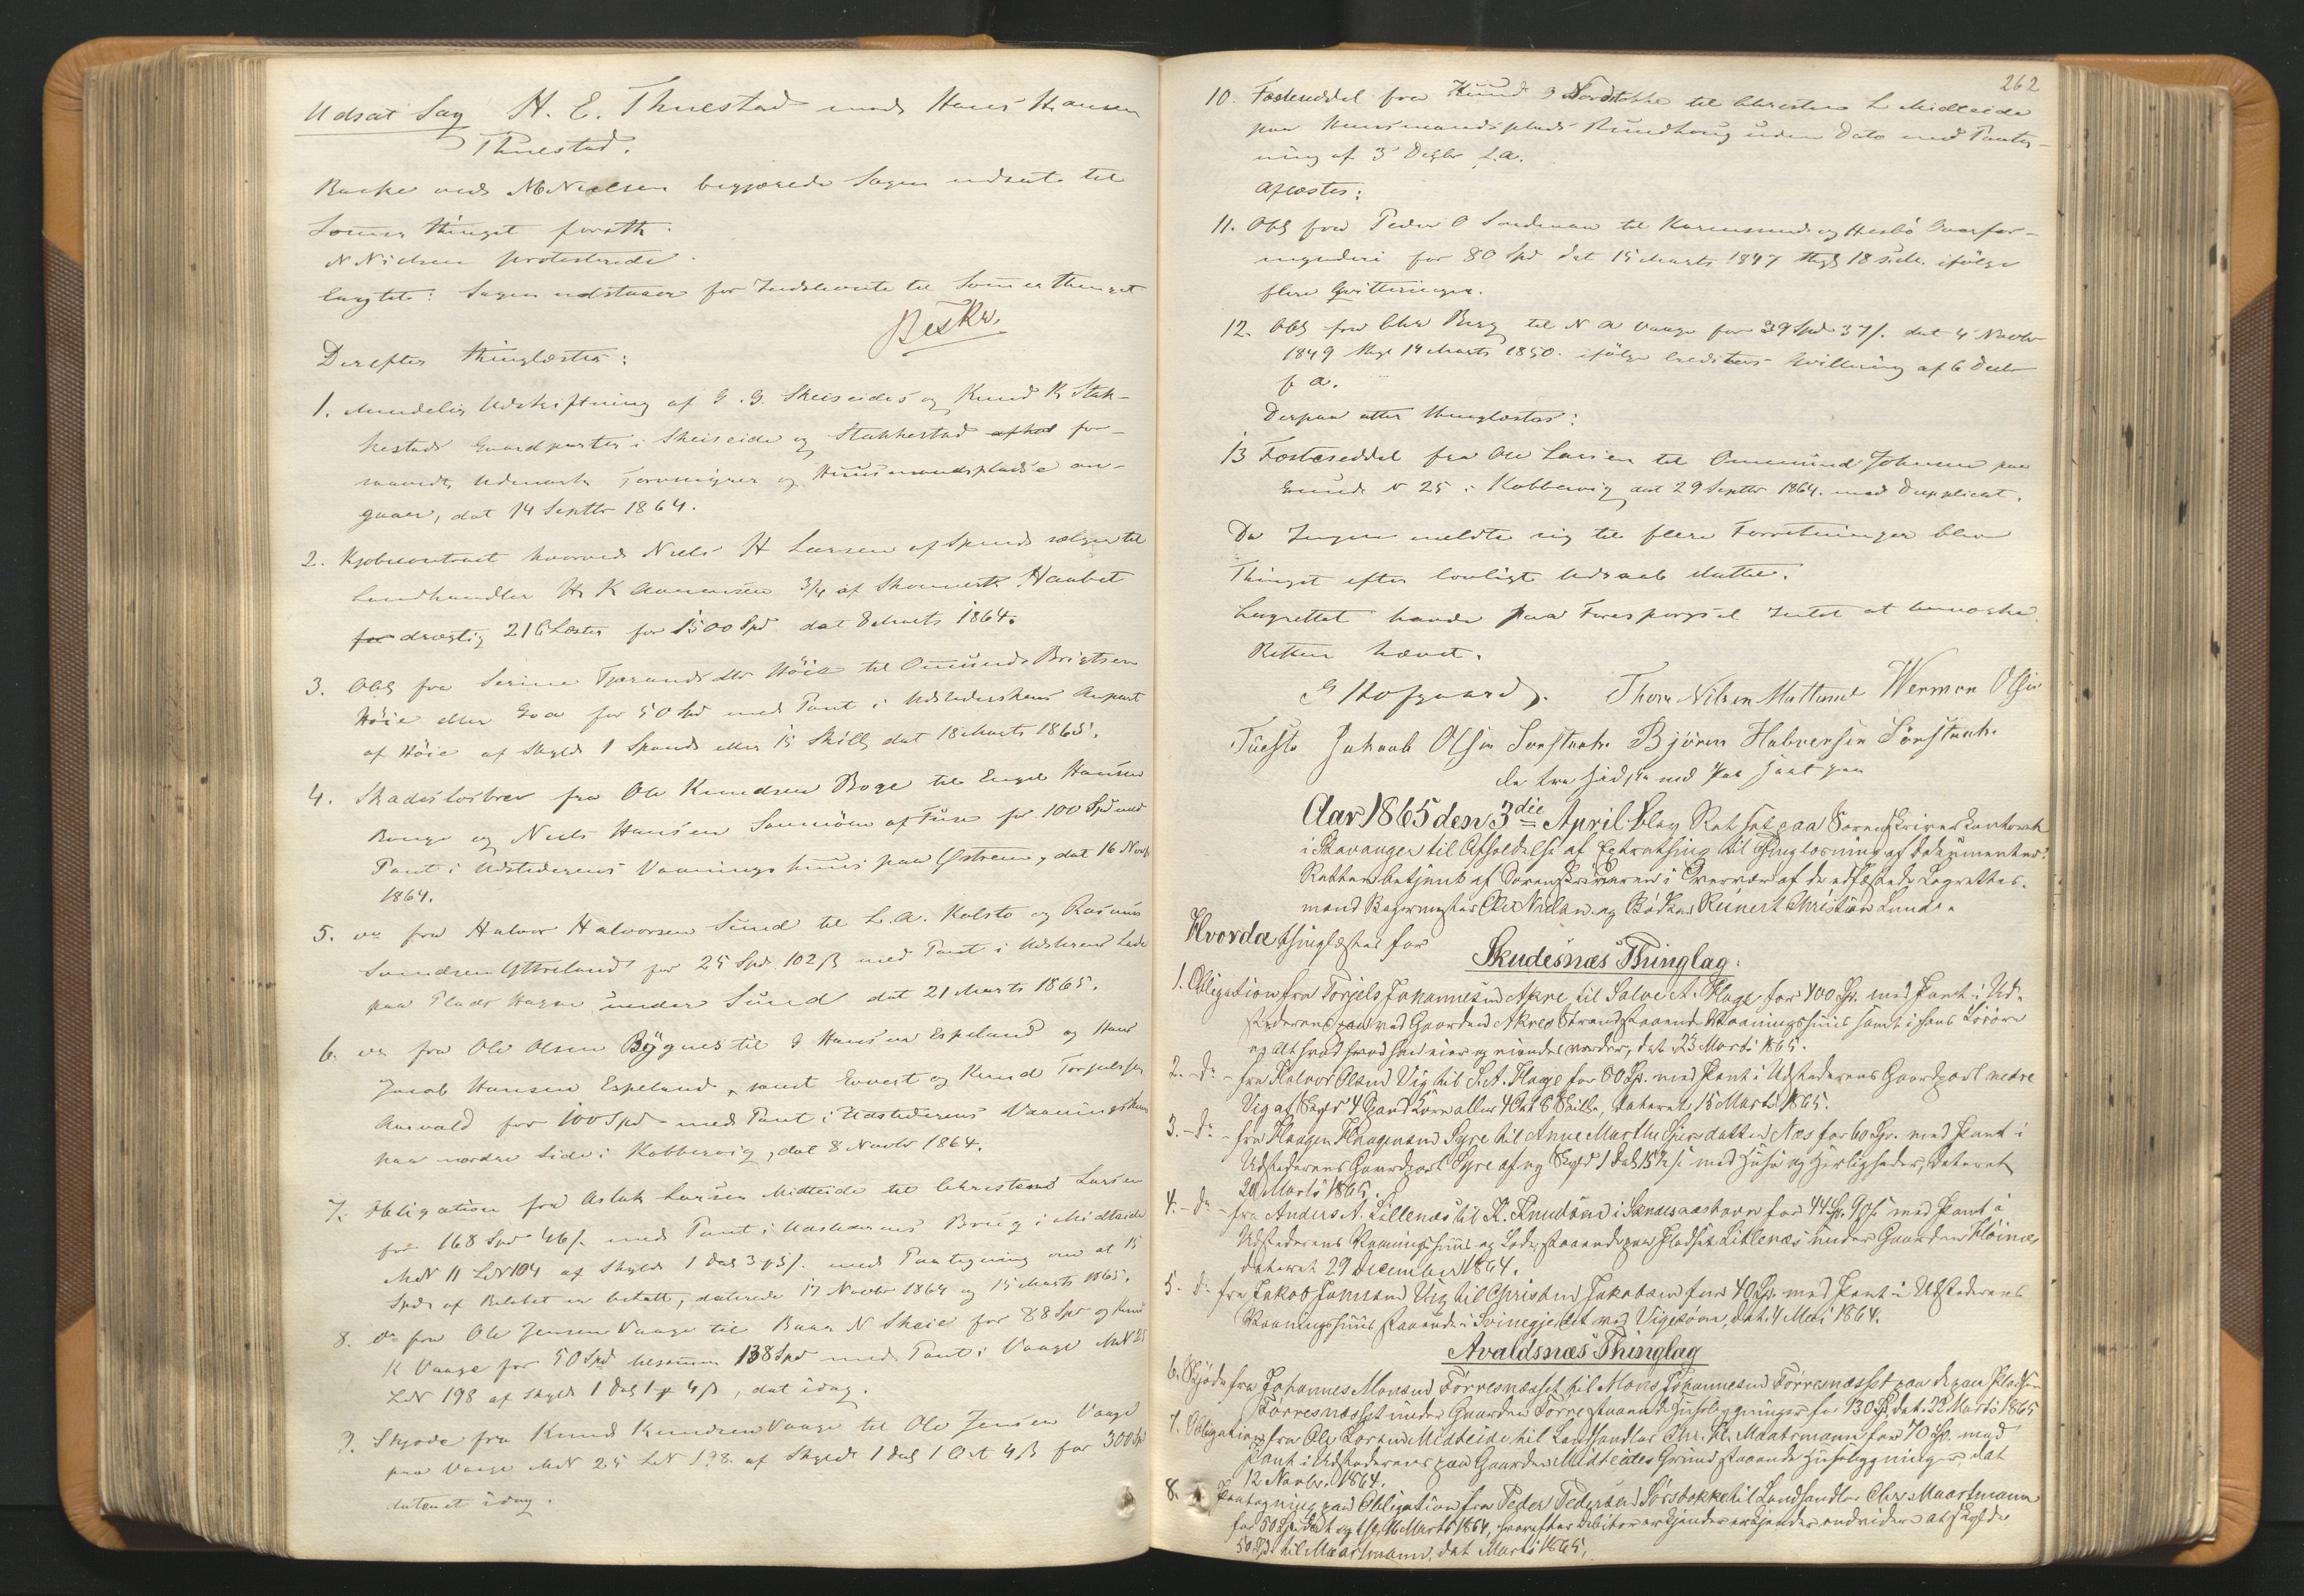 Udsat Sag H. E. Thuestad mod Hans Hansen
Thuestad.
Bucke ved N Nielsen begjærede Sagen udsat til
Sommerthinget
N Nielsen protesterede.
Eragtet: Sagen udstaaer for Indstevnte til Sommerthinget
Beskr.
Derefter thinglæstes:
1. Mindelig Udskiftning af G. G. Skeiseides og Knud K Stak-
kestads Gaardparter i Skeiseide og Stakkestad afhol for-
saavidt Udmark Torvmyrer og Huusmandspladse an-
gaaer, dat 14 Septbr 1864.
2. Kjøbecontract hvorved Niels H Larsen af Spunds sælger til
Landhandler H K Amundsen 3/4 af Skonnert Haabet
for drægtig 21 6 Læster for 1500 Spd. dat 8 Marts 1864.
3. Oblg fra Serine Tjerands dtr Høie til Omund Brigtsen
Høie eller Goa for 50 Spd med Pant i Udstederskens Anpart
af Høie af Skyld 1 Spand eller 15 Skill, dat 18 Marts 1865.
4. Skadesløsbrev fra Ole Knudsen Boge til Engel Hansen
Bouge og Niels Hansen Sannøen af Fuse for 100 Spd med
Pant i Udstederens Vaaningshuus paa Østrem, dat 16 Novb
1864.
5. do fra Halvor Halvorsen Sund til L. A. Kolstø og Rasmus
Svendsen Yttreland for 25 Spd. 102 β med Pant i Udstederens Lade
paa Plads Hagen under Sund dat 21 Marts 1865.
6. do fra Ole Olsen Bygnes til J Hansen Espeland og Hans
Jacob Hansen Espeland, samt Evvert og Knud Torgersen
Aarvald for 100 Spd med Pant i Udstederens Vaaningshuus
paa nordre Side i Kobbervig, dat 8 Novbr 1864.
7. Obligation fra Aslak Larsen Midteide til Christense Larsen
for 168 Spd 46 β. med Pant i Udstederens Brug i Midteide
MN 11 LN 104 af Skyld 1 Dal 3 # 5 β. med Paategning om at 15
Spd af Beløbet er betalt, daterede 17 Novbr 1864 og 15 Marts 1865.
8. do fra Ole Jensen Vaage til Baar N Skeie for 88 Spd og Knud
K Vaage for 50 Spd tilsammen 138 Spd med Pant i Vaage MN 25
LN 198 af Skyld 1 Dal 1 # 4 β, dat idag.
9. Skjøde fra Knud Knudsen Vaage til Ole Jensen Vaage
paa Vaage MN 25 LN 198 af Skyld 1 Dal 1 Ort 4 β for 300 Spd
dateret idag.
262
10. Fæsteseddel fra Knud J Nordstokke til Christen L Midteide
paa Huusmandsplads Rundhoug uden Dato med Paateg-
ning af 3 Decbr f. a.
Aflæstes:
11. Oblg fra Peder O Sandman til Karmsund og Hesbø Overfor-
mynderi for 80 Spd dat 15 Marts 1847 thgl 18 s. M. ifølge
flere Qvitteringer.
12. Oblg fra Chr Berg til N A Vaage for 39 Spd 37 β. dat 4 Novbr
1849 thgl 14 Marts 1850. ifølge Creditors Qvittering af 6 Decbr
f. a.
Derpaa atter thinglæstes:
13 Fæsteseddel fra Ole Larsen til Ommund Johnsen paa
Grund N 25 i Kobbervig dat 29 Septbr 1864. med Dupplicat.
Da Ingen meldte sig til flere Forretninger blev
Thinget efter lovligt Udraab sluttet.
Lagrettet havde paa Forespørgsel Intet at bemærke
Retten hævet.
G Hofgaard. Thore Nilsen Matland Werner Olsen
Tuesto Jakob Olsen Sørstrøk. Bjørn Halvorsen Sørstrøk.
de tre sidste med paaholden pen
Aar 1865 den 3die April blev Ret sat paa Sorenskriverkontoret
i Stavanger til Afholdelse af Extrathing til Thinglæsning af Dokumenter.
Retten betjent af Sorenskriveren i Overvær af de edfæstede Lagrettes-
mænd Bagermester Ole Nielsen og Bødker Reinert Christian Lunde.
Hvorda thinglæstes for
Skudesnæs Thinglag.
1. Obligation fra Torjels Johannesen Akre til Salve A. Hage for 400 Sp. med Pant i Ud-
stederens paa ved Gaarden Akres Strand staaende Vaaningshuus samt i hans Løsøre
og Alt hvad han eier og eiendes vorder, dat 23 Marts 1865.
2. - Do - fra Halvor Olsen Vig til S. A. Hage for 80 Sp. med Pant i Udstederens Gaardpart nedre
Vig af Skyld 4 Spand Korn eller 4 Ort 8 Skill., dateret 15 Marts 1865.
3. - Do - fra Haagen Haagensen Syre til Anne Marthe Sjursdatter Næs for 60 Sp. med Pant i
Udstederens Gaardpart Syre af ny Skyld 1 Dal 15 1/2 β med Huse og Herligheder, dateret
20 Marts 1865.
4. - Do - fra Anders A. Lillenæs til K. Knudsen i Skudesnæshavn for 44 Sp. 90 β. med Pant i
Udstederens Vaaningshuus og Lade, staaende paa Pladset Litlenæs under Gaarden Høines
dateret 29 December 1864.
5. - Do fra Jakob Jensen Vig til Christen Jakobsen for 40 Sp. med Pant i Udstederens
Vaaningshuus staaende i Svinegjerdet ved Vigesøen, dat. 4 Mai 1864.
Avaldsnæs Thinglag
6. Skjøde fra Johannes Monsen Førresnæsset til Mons Johannesen Førresnæsset paa de paa Pladsen
Førresnæsset under Gaarden Førre staaende Husebygninger for 130 Sp., dat. 22 Marts 1865
7. Obligation fra Ole Larsen Midteide til Landhandler Chr. H. Maartmann for 70 Sp. med
Pant i Udstederens paa Gaarden Midteides Grund staaende Husebygninger, dat
12 Novbr. 1864.
8. Paategning paa Obligation fra Peder Pedersen Sørstokke til Landhandler Chr. Maartmann
for 50 Spd. dat og thgl. 16 Marts 1864, hvorefter Debitor erkjender endvidere at skylde
50 Spd. til Maartmann, dat Marts 1865.